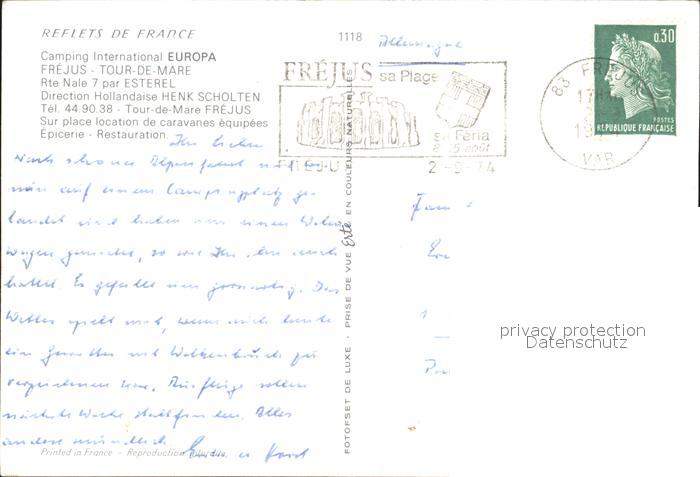 REFLETS DE FRANCE
Camping International EUROPA
FRÉJUS - TOUR-DE-MARE
Rte Nale 7 par ESTEREL
Direction Hollandaise HENK SCHOLTEN
Tél. 44.90.38 - Tour-de-Mare FRÉJUS
Sur place location de caravanes équipées
Épicerie - Restauration.
1118
Allemagne
FRÉJUS sa Plage
sa Féria
août
2-9-74
0.30
POSTES
RÉPUBLIQUE FRANÇAISE
83 FRÉJUS
VAR
Ihr Lieben
Nach schöner Alpenfahrt
wir auf einem Campingplatz ge-
landet und haben nun einen Wohn
wagen gemietet, so wie Ihr ihn auch
hattet. Es gefällt uns grossartig. Das
Wetter spielt mit, wenn auch heute
ein Gewitter mit Wolkenbruch zu
verzeichnen war. Ausflüge sollen
nächste Woche stattfinden. Alles
andere mündlich
Fam
PHOTOFSET DE LUXE - PRISE DE VUE Erte EN COULEURS NATURELLES
Printed in France - Reproduction interdite
privacy protection
Datenschutz